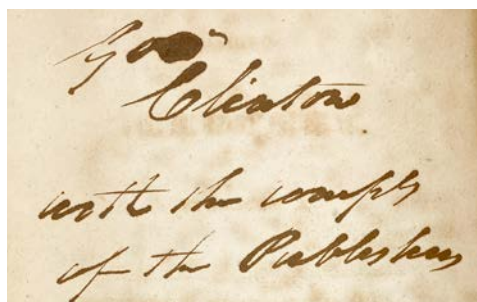 Clinton
with the compts
of the Publishers